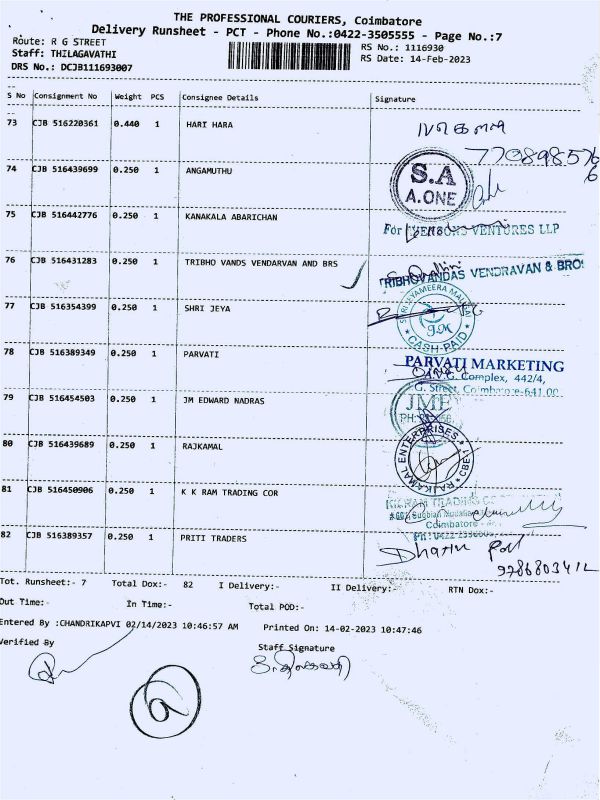 THE PROFESSIONAL COURIERS, Coimbatore
Delivery Runsheet - PCT - Phone No.:0422-3505555 - Page No.:7
Route: R G STREET
Staff: THILAGAVATHI
DRS No.: DCJB111693007
RS No.: 1116930
RS Date: 14-Feb-2023
S No Consignment No Weight PCS Consignee Details Signature
73 CJB 516220361 0.440 1 HARI HARA
770898576
6
74 CJB 516439699 0.250 1 ANGAMUTHU
S.A
A.ONE
75 CJB 516442776 0.250 1 KANAKALA ABARICHAN
For VENTURES LLP
76 CJB 516431283 0.250 1 TRIBHO VANDS VENDARVAN AND BRS
TRIBHOVANDAS VENDRAVAN & BROS
77 CJB 516354399 0.250 1 SHRI JEYA
CASH-PAID
78 CJB 516389349 0.250 1 PARVATI
PARVATI MARKETING
Complex, 442/4,
G. Street, Coimbatore-641 001
79 CJB 516454503 0.250 1 JM EDWARD NADRAS
80 CJB 516439689 0.250 1 RAJKAMAL
RAJKAMAL ENTERPRISES
81 CJB 516450906 0.250 1 K K RAM TRADING COR
TRADING
Coimbatore
82 CJB 516389357 0.250 1 PRITI TRADERS
Tot. Runsheet:- 7 Total Dox:- 82 I Delivery:- II Delivery:- RTN Dox:-
Out Time:- In Time:- Total POD:-
Entered By :CHANDRIKAPVI 02/14/2023 10:46:57 AM Printed On: 14-02-2023 10:47:46
Verified By Staff Signature